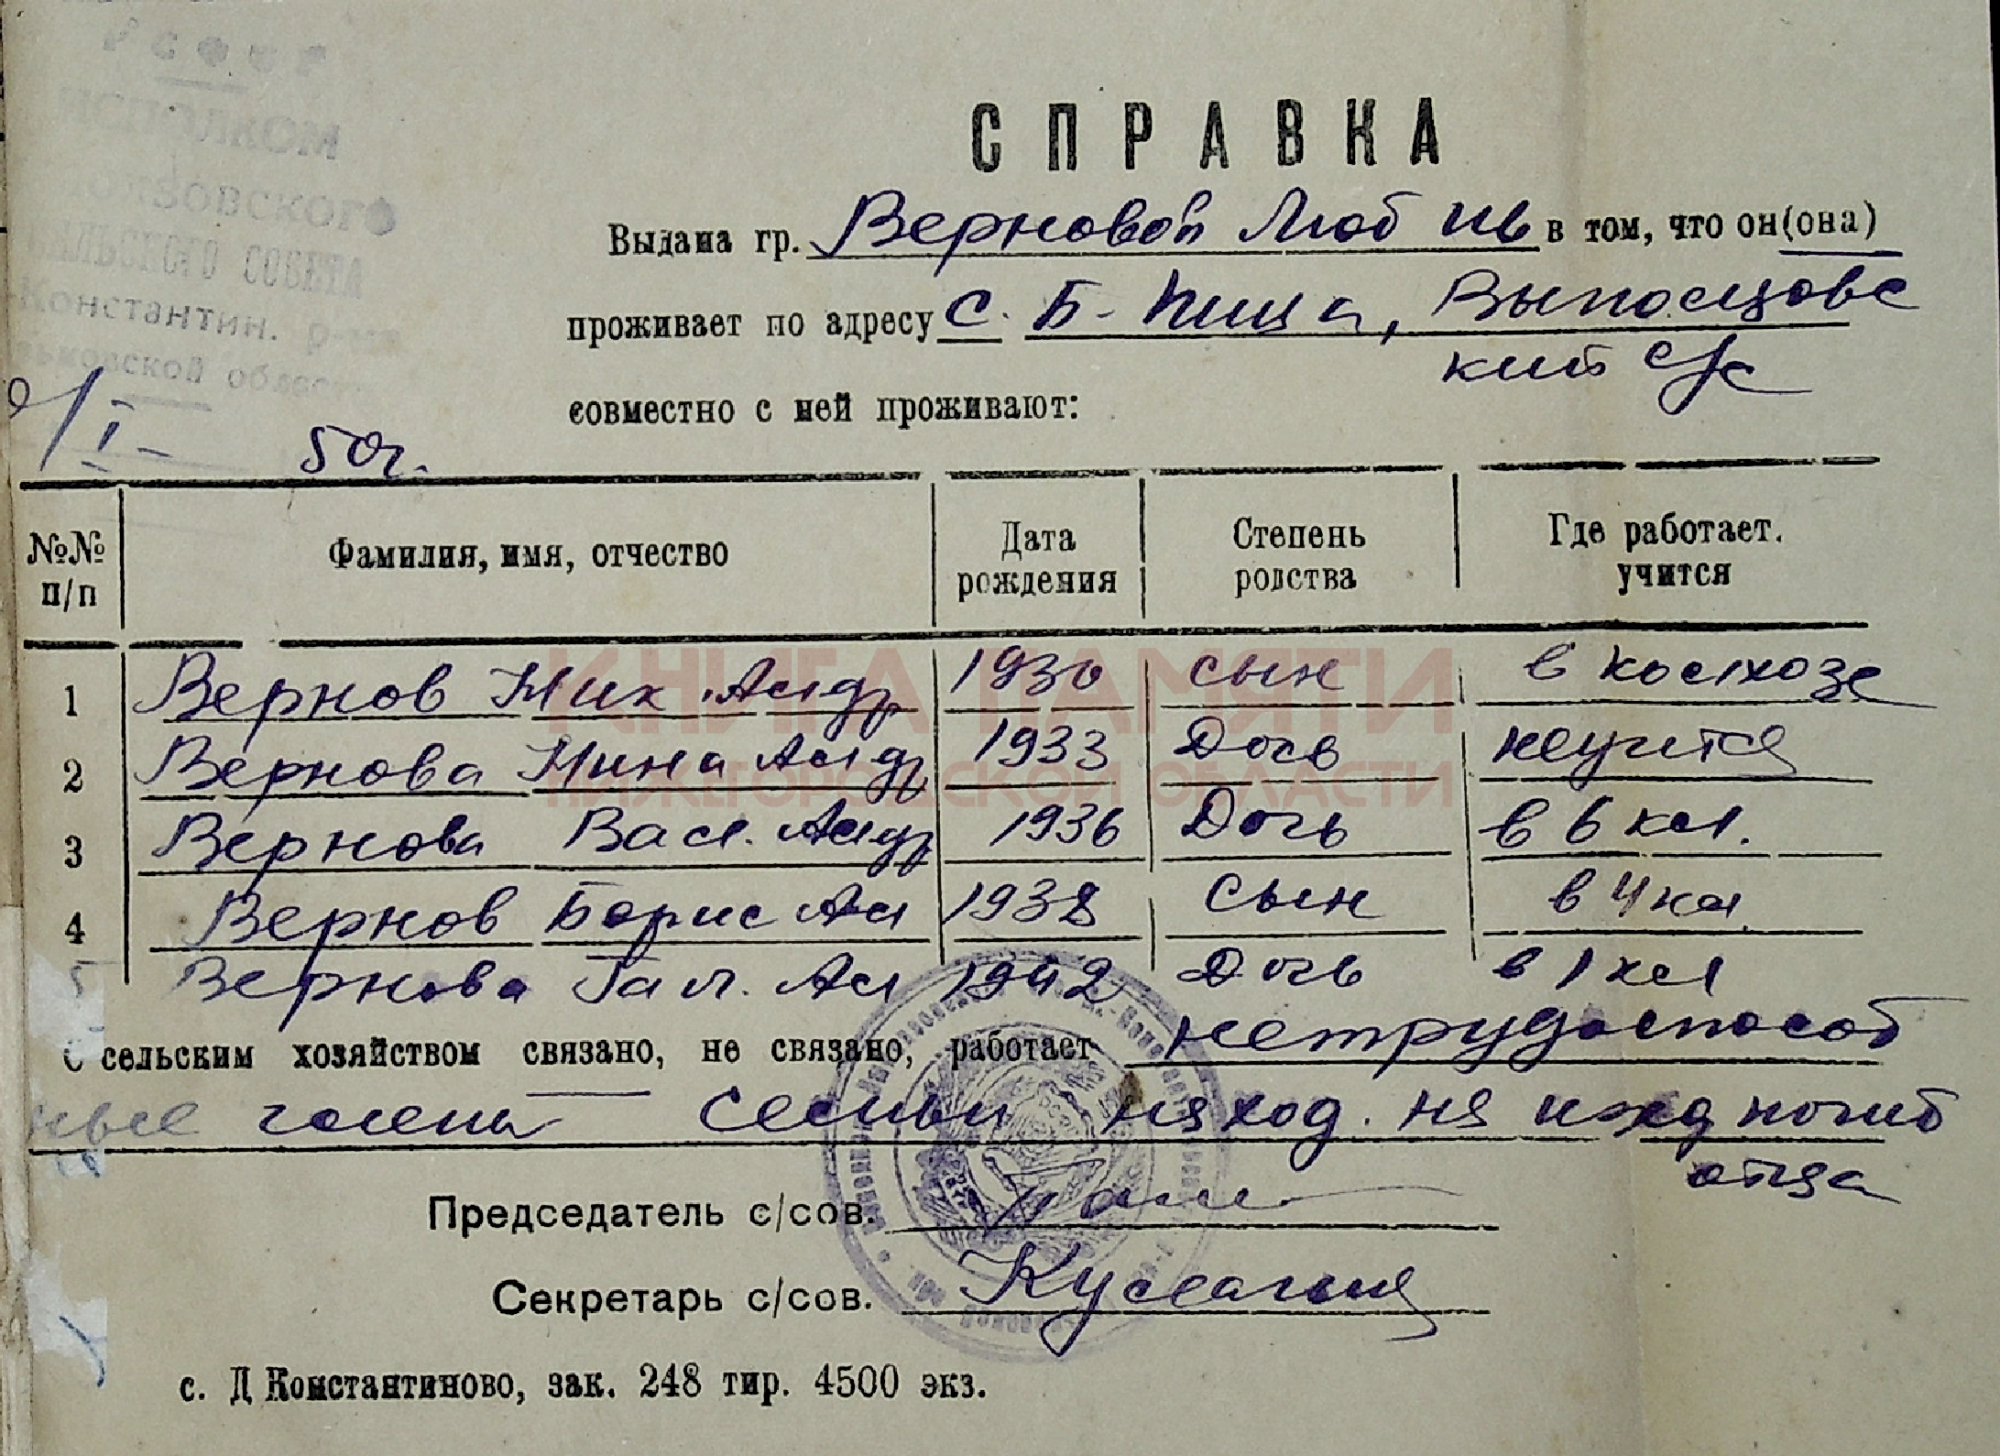 РСФСР
ИСПОЛКОМ
СОВЕТА
Константин. р-на
области
СПРАВКА
Выдана гр. Верновой Люб Ив в том, что он(она)
проживает по адресу с. Б-Пица,
кий с/с
совместно с ней проживают:
I 50г.
№№ п/п Фамилия, имя, отчество Дата рождения Степень родства Где работает. учится
1 Вернов Ник. Алдр 1930 сын в колхозе
2 Вернова Нина Алдр 1933 Дочь неучится
3 Вернова Васл. Алдр 1936 Дочь в 6 кл.
4 Вернов Борис Ал 1938 сын в 4 кл
5 Вернова Гал. Ал 1942 Дочь в 1 кл
С сельским хозяйством связано, не связано, работает нетрудоспособ
ные члены семьи наход. на ижд погиб
отца
Председатель с/сов.
Секретарь с/сов.
с. Д Константиново, зак. 248 тир. 4500 экз.
КНИГА ПАМЯТИ
НИЖЕГОРОДСКОЙ ОБЛАСТИ